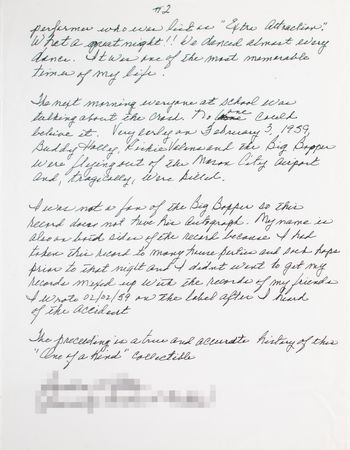 #2
performer who was list as "Extra Attraction".
What a great night!! We danced almost every
dance. It was one of the most memorable
times of my life.
The next morning everyone at school was
talking about the crash. No one could
believe it. Very early on February 3, 1959,
Buddy Holly, Richie Valens and the Big Bopper
were flying out of the Mason City Airport
and, tragically, were killed.
I was not a fan of the Big Bopper so this
record does not have his autograph. My name is
also on both sides of the record because I had
taken this record to many house parties and sock hops
prior to that night and I didn't want to get my
records mixed up with the records of my friends
I wrote 02/02/59 on the label after I heard
of the accident
The preceeding is a true and accurate history of this
"One of a Kind" collectible